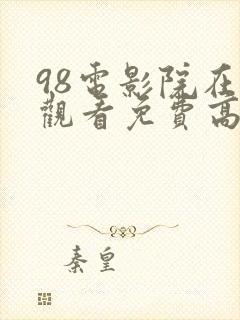 98電影院在
觀看免費高
秦皇